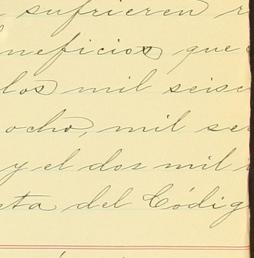 sufrieren r
neficios que
los mil seisc
ocho, mil se
y el dos mil
sta del Códig